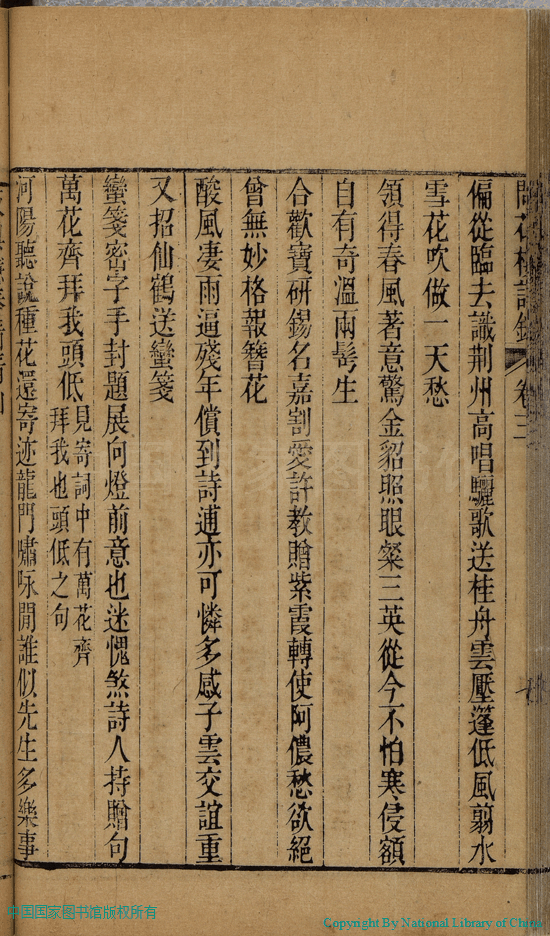 問花樓詩鈔 卷三
偏從臨去識荆州高唱驪歌送桂舟雲壓蓬低風翦水
雪花吹做一天愁
領得春風著意驚金貂照眼粲三英從今不怕寒侵額
自有奇溫兩鬂生
合歡寶研錫名嘉割愛許教贈紫霞轉使阿儂愁欲絕
曾無妙格報簪花
酸風凄雨逼殘年償到詩逋亦可憐多感子雲交誼重
又招仙鶴送蠻箋
蠻箋密字手封題展向燈前意也迷愧煞詩人持贈句
萬花齊拜我頭低見寄詞中有萬花齊
拜我也頭低之句
河陽聽說種花還寄迹龍門嘯咏閒誰似先生多樂事
中国国家图书馆版权所有
Copyright By National Library of China